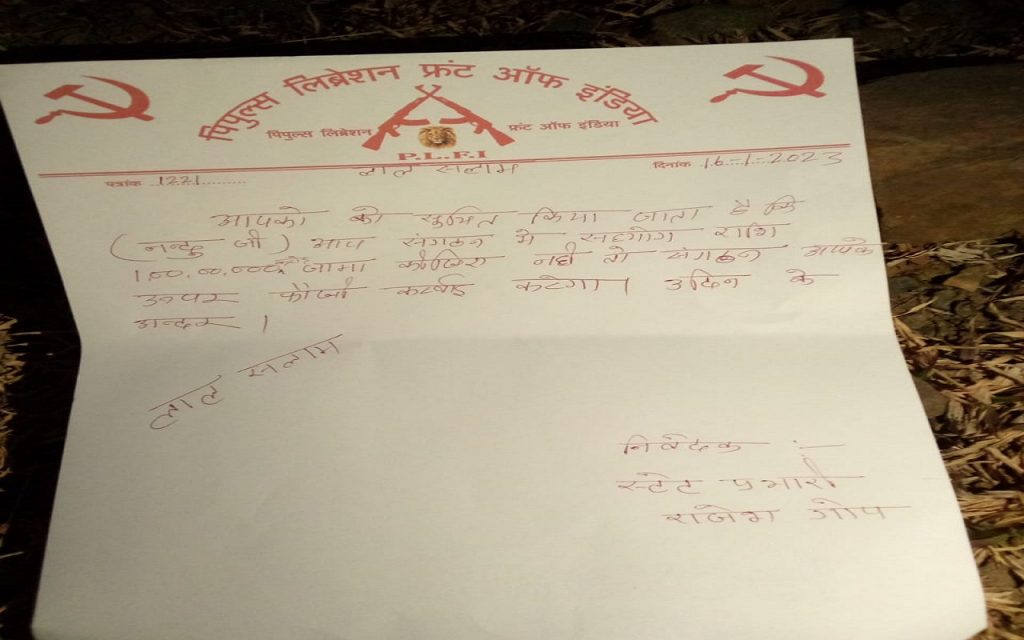 पिपुल्स लिब्रेशन फ्रंट ऑफ इंडिया
पिपुल्स लिब्रेशन फ्रंट ऑफ इंडिया
P.L.F.I
लाल सलाम
पत्रांक 1221 दिनांक 16-1-2023
आपको को सुचित किया जाता है कि
(नन्दु जी) आप संगठन मे सहयोग राशि
1,00,00,000 जामा किजिए नही तो संगठन आपके
उपर फौजी करेगा। 3 दिन के
अन्दर।
लाल सलाम
निवेदक :-
स्टेट प्रभारी
राजेश गोप